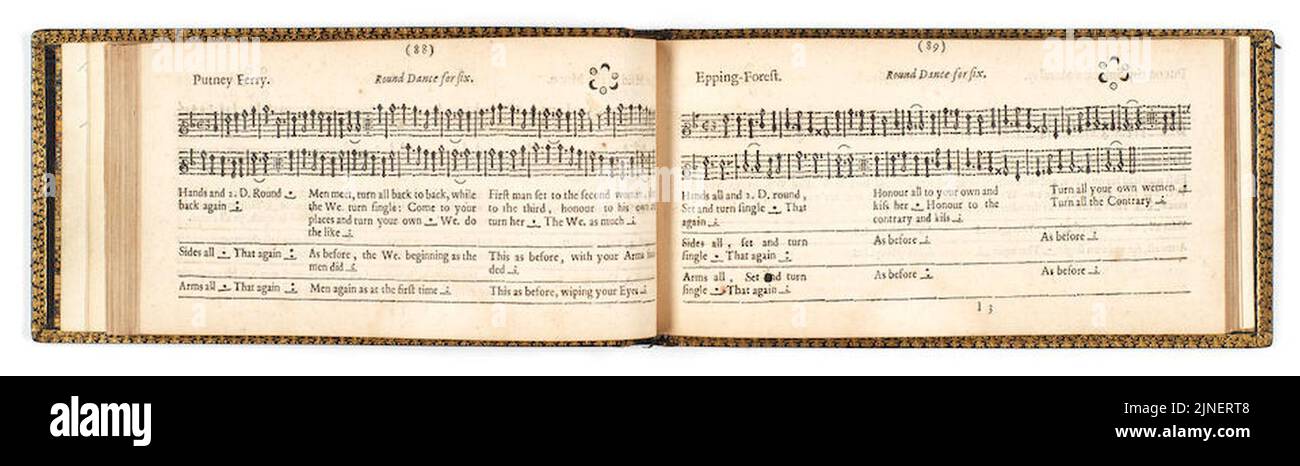 (88)
Putney Ferry.
Round Dance for six.
Hands and 2. D. Round
back again
Men meet, turn all back to back, while
the We. turn single: Come to your
places and turn your own We. do
the like
First man set to the second
to the third, honour to his
turn her The We. as much
Sides all That again
As before, the We. beginning as the
men did
This as before, with your Arms
ded
Arms all That again
Men again as at the first time
This as before, wiping your Eyes
(89)
Epping-Forest.
Round Dance for six.
Hands all and 2. D. round,
Set and turn single That
again
Honour all to your own and
kiss her Honour to the
contrary and kiss
Turn all your own women
Turn all the Contrary
Sides all, set and turn
single That again
As before
As before
Arms all, Set and turn
single That again
As before
As before
I 3
alamy
a
a
alamy
Image ID: 2JNERT8
www.alamy.com